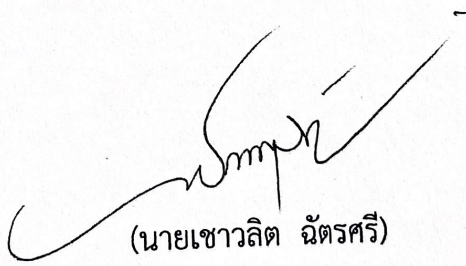 (นายเชาวลิต ฉัตรศรี)